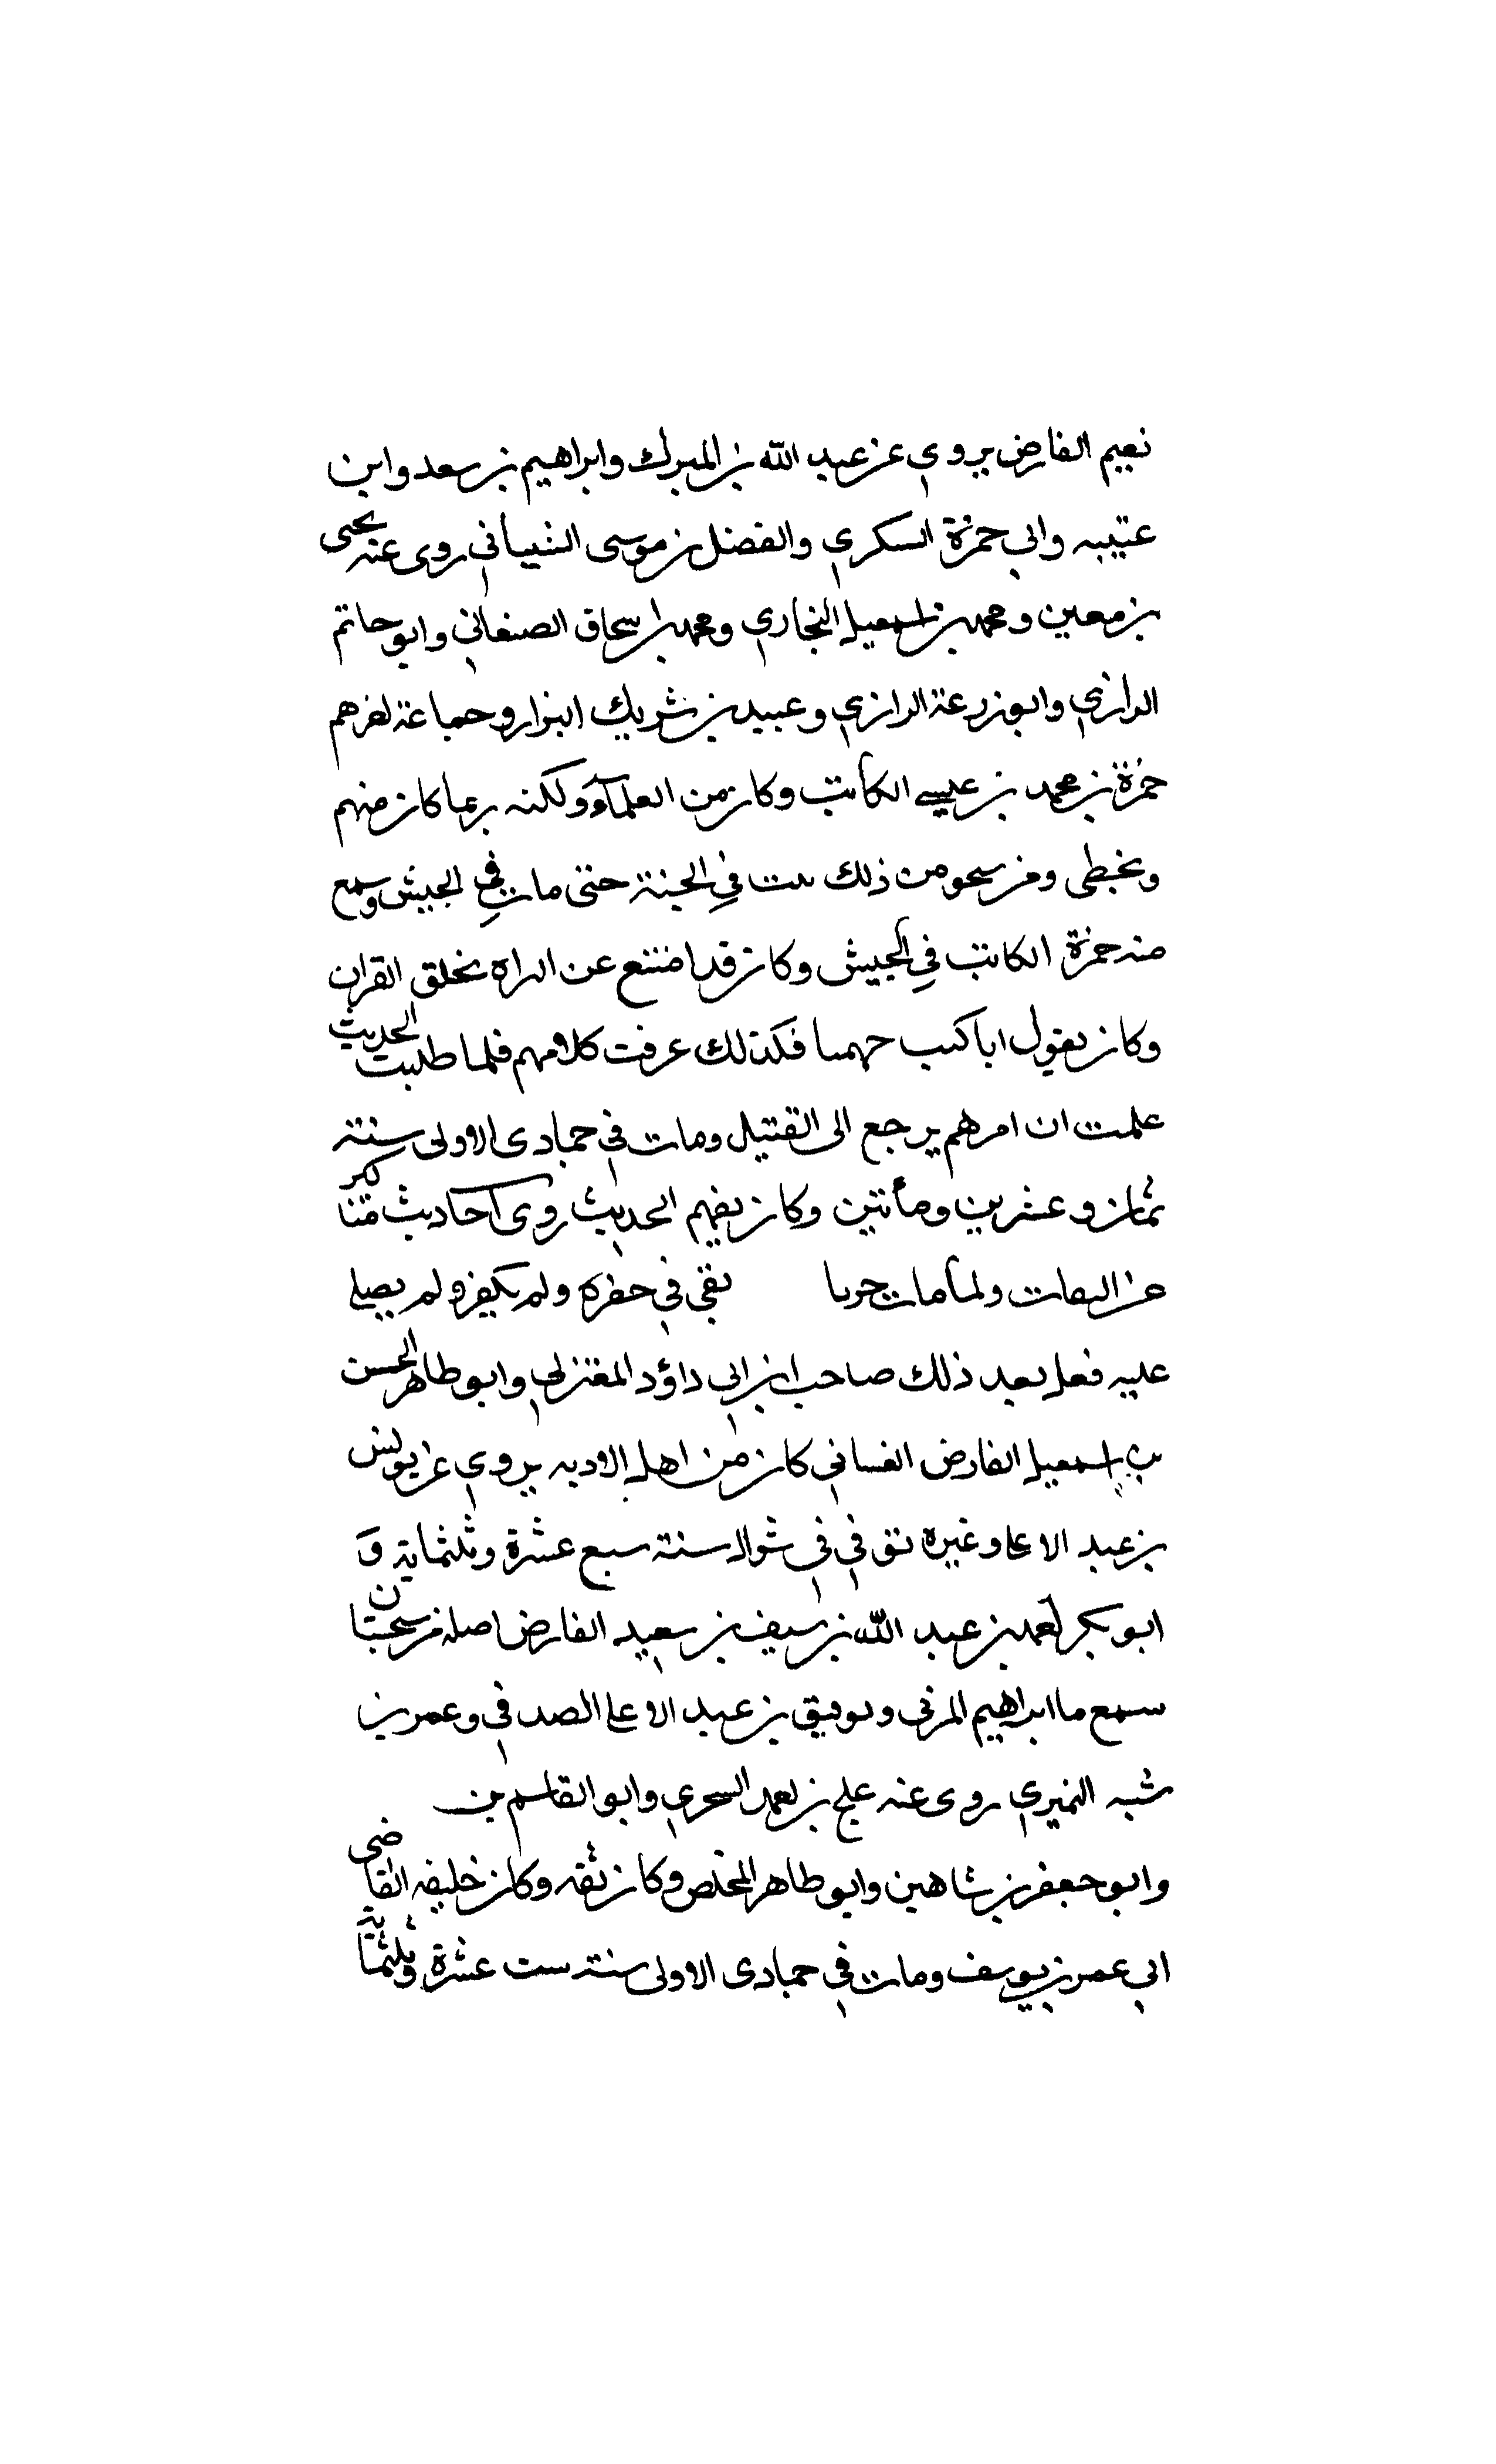 نعيم الفارض يروي عن عبد الله بن المبرك وابراهيم بن سعد وابن
عتيبه وابي حمزة السكري والفضل بن موسى الشيباني روى عنه يحيى
بن معين ومحمد بن اسمعيل البخاري ومحمد بن اسحاق الصنعاني وابو حاتم
الرازي وابو زرعة الرازي وعبيد بن شريك البزار وجماعة اخرهم
حمزة بن محمد بن عيسى الكاتب وكان من العلماء ولكنه ربما كان منهم
ويخطى ومن ذلك في الحبنة حتى مات في الجيش وسمع
منه حمزة الكاتب في الجيش وكان قد امتنع عن بخلق القران
وكان يقول فكذلك عرفت كلامهم فلما طلبت الحديث
علمت ان امرهم يرجع الى القتيل ومات في جمادى الاولى سنة
ثمان وعشرين ومأتين وكان يفهم الحديث روى احاديث
عن ولما مات في حفرة ولم يكفن ولم يصلي
عليه فعل بعد ذلك صاحب ابن ابي داؤد المعتزلي وابو طاهر الحسن
بن اسمعيل الفارض الغساني كان من اهل يروي عن يونس
بن عبد الاعلى وغيره توفي في شوال سنة سبع عشرة وثلثماية و
ابو بكر احمد بن عبد الله بن سيف بن سعيد الفارض اصله من
سمع ابراهيم المزني بن عبد الاعلى الصدفي وعمر بن
شبه النميري روى عنه علي بن وابو القاسم بن
وابو جعفر بن شاهين وابو طاهر المخلص وكان ثقه وكان خليفه القاضى
ابي عمر بن يوسف ومات في جمادى الاولى سنة ست عشرة وثلثماية